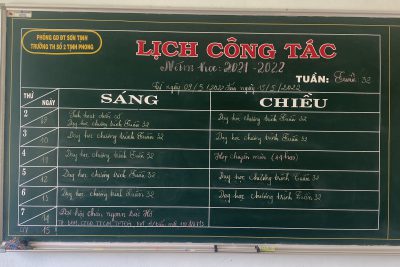 PHÒNG GD ĐT SƠN TỊNH
TRƯỜNG TH SỐ 2 TỊNH PHONG
LỊCH CÔNG TÁC
Năm học: 2021 - 2022
TUẦN: Tuần 32
Từ ngày 09/5/2022 đến ngày 15/5/2022
THỨ NGÀY SÁNG CHIỀU
2 Sinh hoạt dưới cờ
Dạy học chương trình Tuần 32 Dạy học chương trình Tuần 32
3 10 Dạy học chương trình Tuần 32 Dạy học chương trình Tuần 32
4 Dạy học chương trình Tuần 32 Họp chuyên môn
5 12 Dạy học chương trình Tuần 32 Dạy học chương trình Tuần 32
6 13 Dạy học chương trình Tuần 32 Dạy học chương trình Tuần 32
7 14 Đại hội cháu ngoan Bác Hồ
CN 15